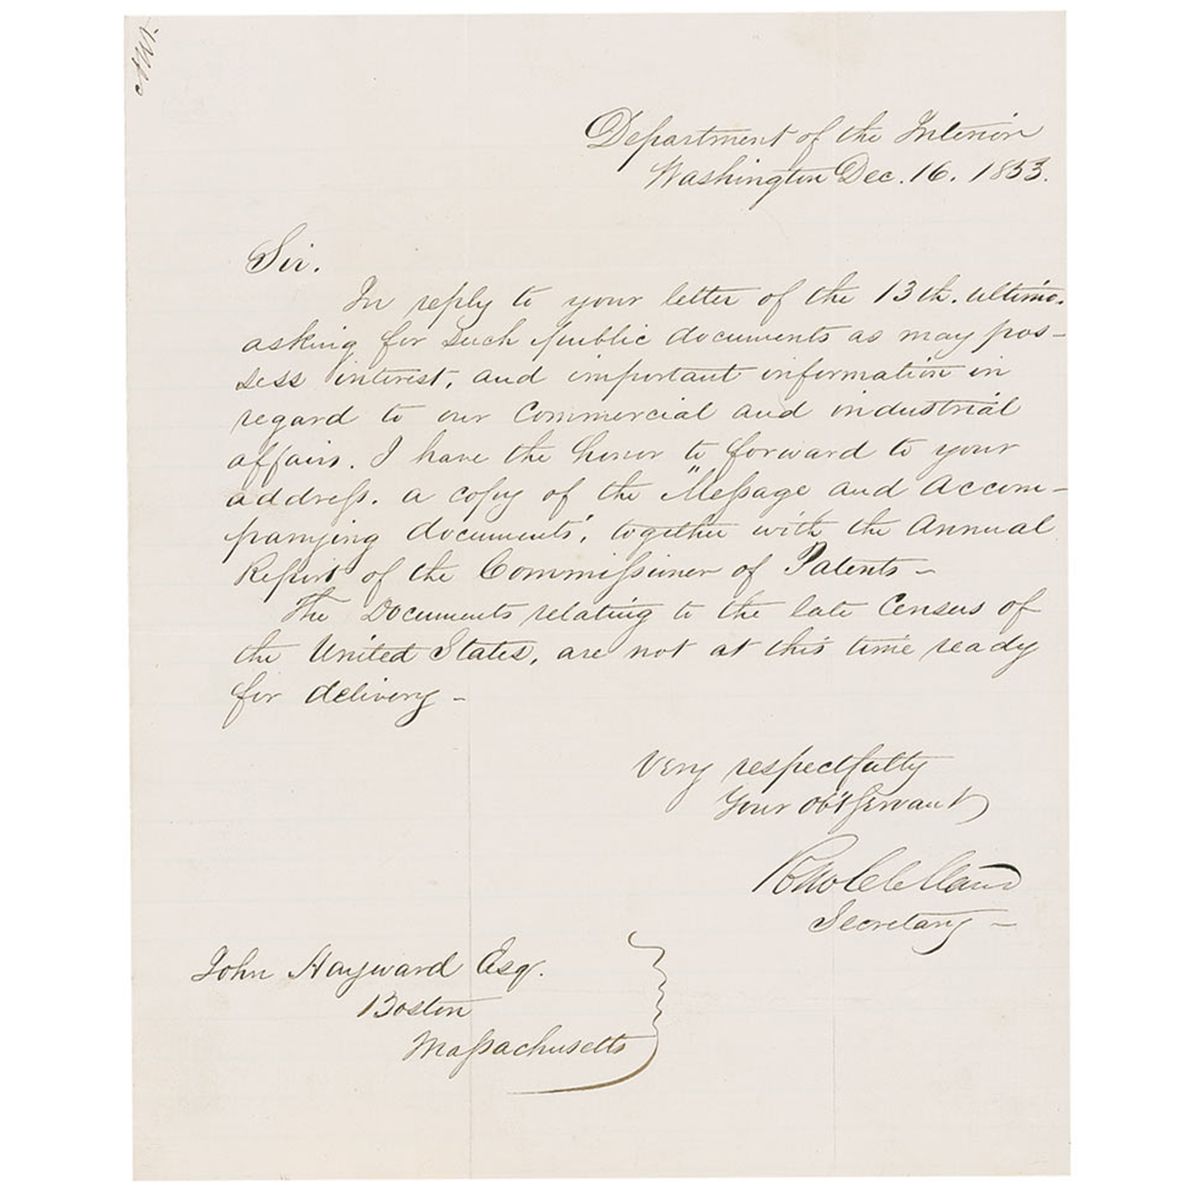 Department of the Interior
Washington Dec. 16. 1853.
Sir.
In reply to your letter of the 13th. ultimo.
asking for such public documents as may pos-
sess interest, and important information in
regard to our Commercial and industrial
affairs. I have the honor to forward to your
address. a copy of the "Message and Accom-
panying documents", together with the Annual
Report of the Commissioner of Patents -
The Documents relating to the late Census of
the United States, are not at this time ready
for delivery -
Very respectfully
Your obt Servant
R McClelland
Secretary -
John Hayward Esqr.
Boston
Massachusetts